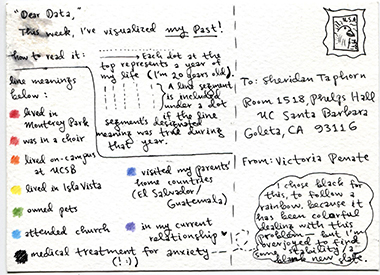 "Dear Data,"
This week, I've visualized my Past!
how to read it:
Each dot at the
top represents a year of
my life (I'm 20 years old).
A line segment
is included
under a dot
if the line
segment's designated
meaning was true during
that year.
line meanings
below:
lived in
Monterey Park
was in a choir
lived on-campus
at UCSB
lived in Isla Vista
owned pets
attended church
medical treatment for anxiety
(!:)
visited my parents'
home countries
(El Salvador/
Guatemala)
in my current
relationship ♥
USA
To: Sheridan Taphorn
Room 1518, Phelps Hall
UC Santa Barbara
Goleta, CA 93116
From: Victoria Penate
I chose black for
this, to follow a
rainbow, because it
has been colorful
dealing with this
problem – but I'm
overjoyed to find
some stability/a
blank new slate.